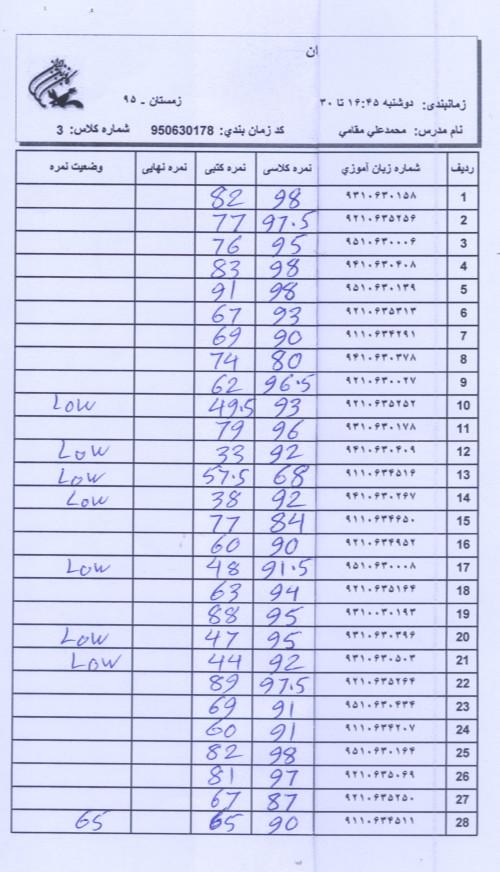 ان
زمانبندی: دوشنبه ۱۶:۴۵ تا ۳۰ زمستان - ۹۵
نام مدرس: محمدعلي مقامي کد زمان بندي: 950630178 شماره کلاس: 3
رديف شماره زبان آموزي نمره کلاسی نمره کتبی نمره نهایی وضعیت نمره
1 ۹۳۱۰۶۳۰۱۵۸ 98 82
2 ۹۲۱۰۶۳۵۲۵۶ 97.5 77
3 ۹۵۱۰۶۳۰۰۰۶ 95 76
4 ۹۴۱۰۶۳۰۴۰۸ 98 83
5 ۹۵۱۰۶۳۰۱۳۹ 98 91
6 ۹۲۱۰۶۳۵۳۱۳ 93 67
7 ۹۱۱۰۶۳۴۲۹۱ 90 69
8 ۹۴۱۰۶۳۰۳۷۸ 80 74
9 ۹۲۱۰۶۳۰۰۲۷ 96.5 62
10 ۹۲۱۰۶۳۵۲۵۲ 93 49.5 Low
11 ۹۳۱۰۶۳۰۱۷۸ 96 79
12 ۹۴۱۰۶۳۰۴۰۹ 92 33 Low
13 ۹۱۱۰۶۳۴۵۱۶ 68 57.5 Low
14 ۹۴۱۰۶۳۰۲۶۷ 92 38 Low
15 ۹۱۱۰۶۳۴۶۵۰ 84 77
16 ۹۲۱۰۶۳۴۹۵۲ 90 60
17 ۹۵۱۰۶۳۰۰۰۸ 91.5 48 Low
18 ۹۲۱۰۶۳۵۱۶۴ 94 63
19 ۹۳۱۰۰۳۰۱۹۳ 95 88
20 ۹۳۱۰۶۳۰۳۹۶ 95 47 Low
21 ۹۳۱۰۶۳۰۵۰۳ 92 44 Low
22 ۹۲۱۰۶۳۵۲۶۴ 97.5 89
23 ۹۵۱۰۶۳۰۴۳۴ 91 69
24 ۹۱۱۰۶۳۴۲۰۷ 91 60
25 ۹۵۱۰۶۳۰۱۶۴ 98 82
26 ۹۲۱۰۶۳۵۰۶۹ 97 81
27 ۹۲۱۰۶۳۵۲۵۰ 87 67
28 ۹۱۱۰۶۳۴۵۱۱ 90 65 65